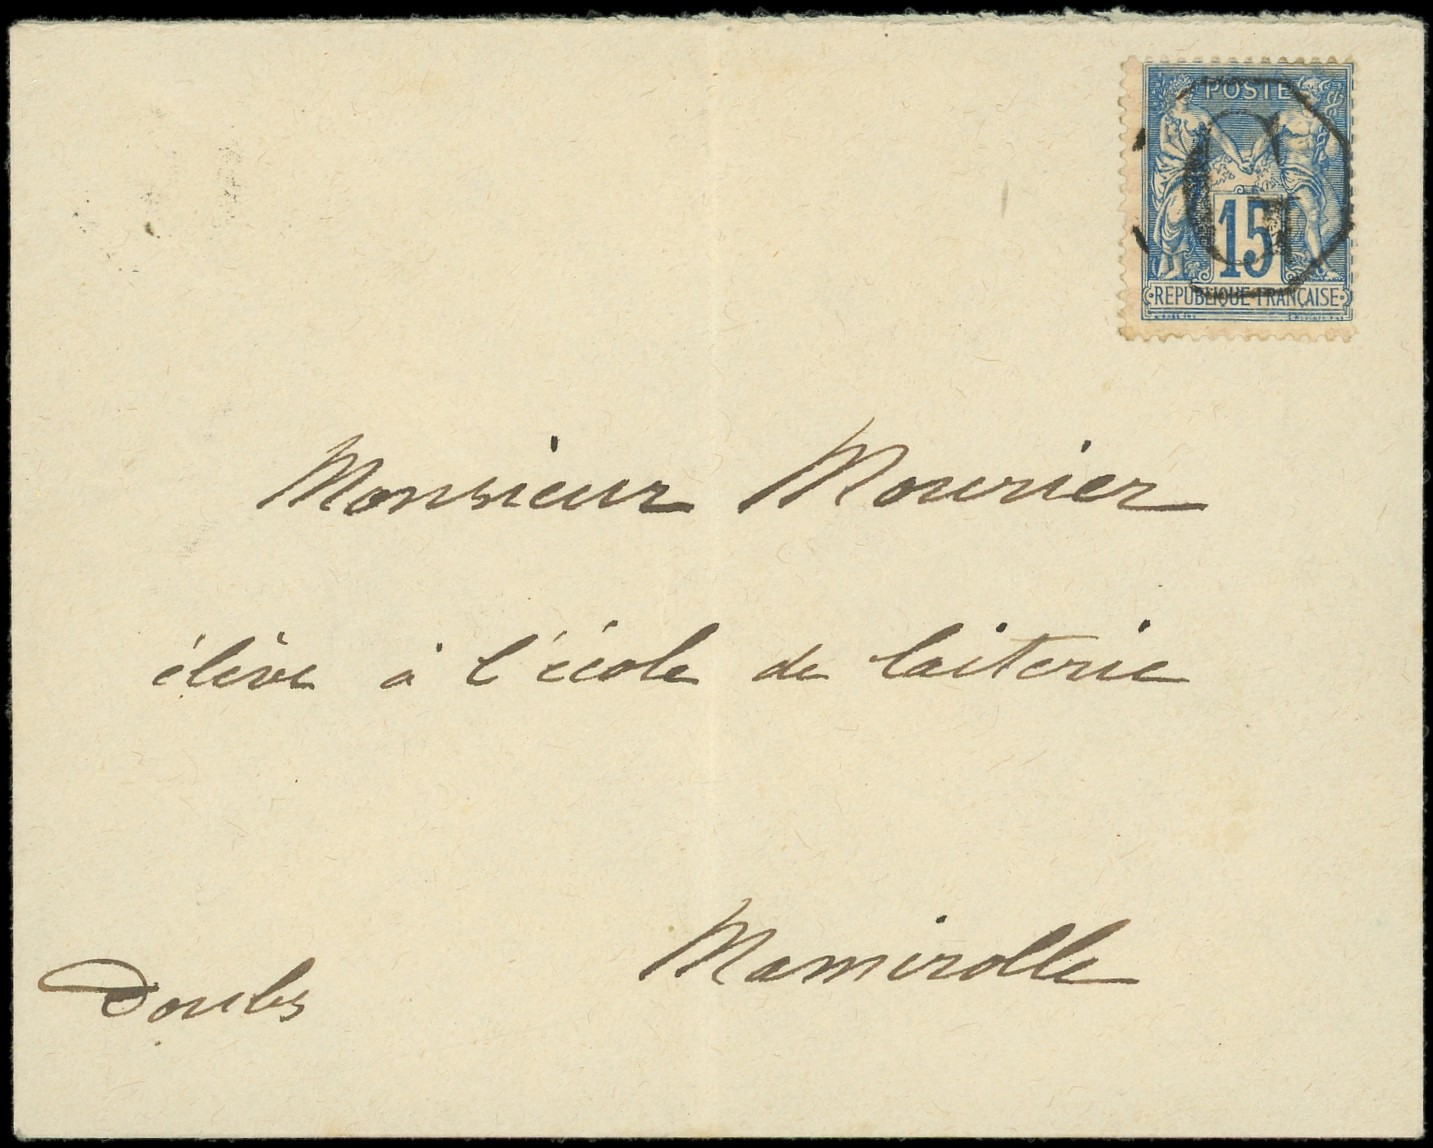 POSTES
G
15
REPUBLIQUE FRANÇAISE
Monsieur Mourier
élève à l'école de laiterie
Mamirolle
Doubs